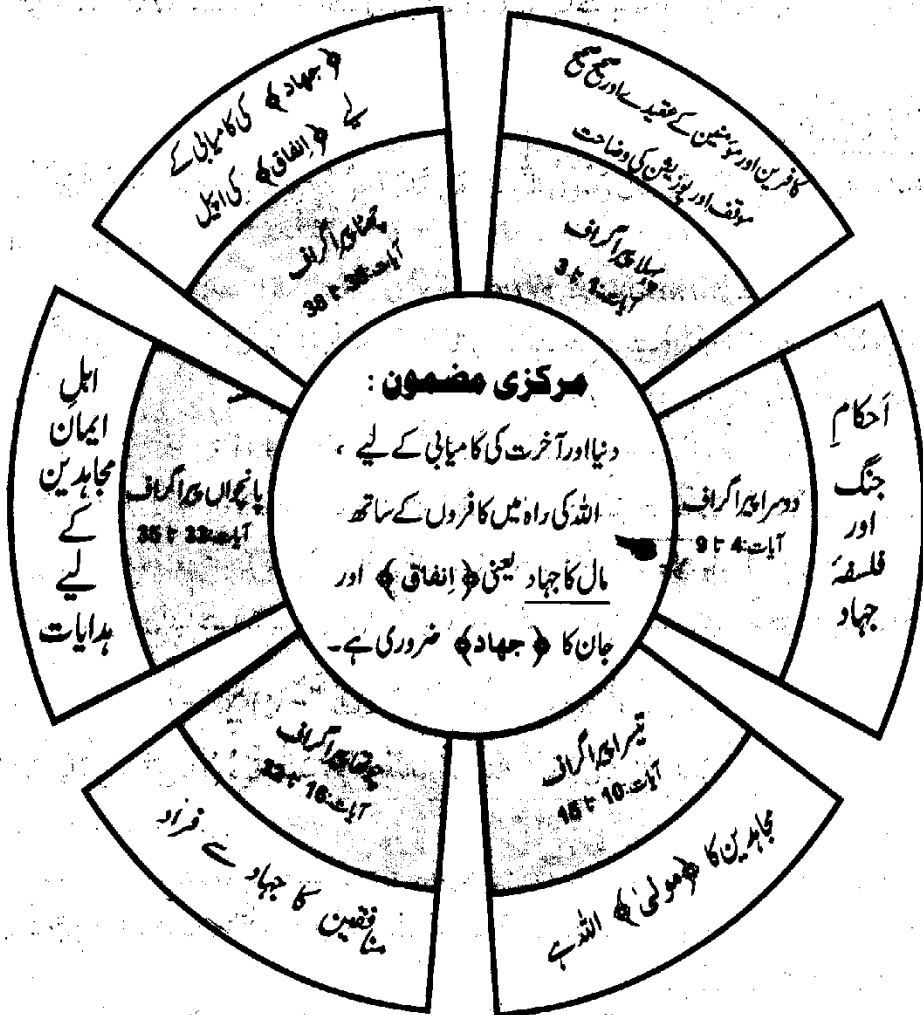 مرکزی مضمون :
دنیا اور آخرت کی کامیابی کے لیے ،
اللہ کی راہ میں کافروں کے ساتھ
مال کا جہاد یعنی ﴿ اِنفاق ﴾ اور
جان کا ﴿ جهاد ﴾ ضروری ہے۔
کافرین اور مؤمنین کے عقیدے اور صحیح صحیح
موقف اور پوزیشن کی وضاحت
پہلا پیراگراف
آیات:1 تا 3
اَحکامِ
جنگ
اور
فلسفۂ
جہاد
دوسرا پیراگراف
آیات:4 تا 9
تیسرا پیراگراف
آیات:10 تا 15
مجاہدین کا ﴿مولیٰ﴾ اللہ ہے
چوتھا پیراگراف
آیات:16 تا 32
منافقین کا جہاد سے فرار
اہلِ
ایمان
مجاہدین
کے
لیے
ہدایات
پانچواں پیراگراف
آیات:33 تا 35
﴿جهاد﴾ کی کامیابی کے
لیے ﴿اِنفاق﴾ کی اپیل
چھٹا پیراگراف
آیات:36 تا 38